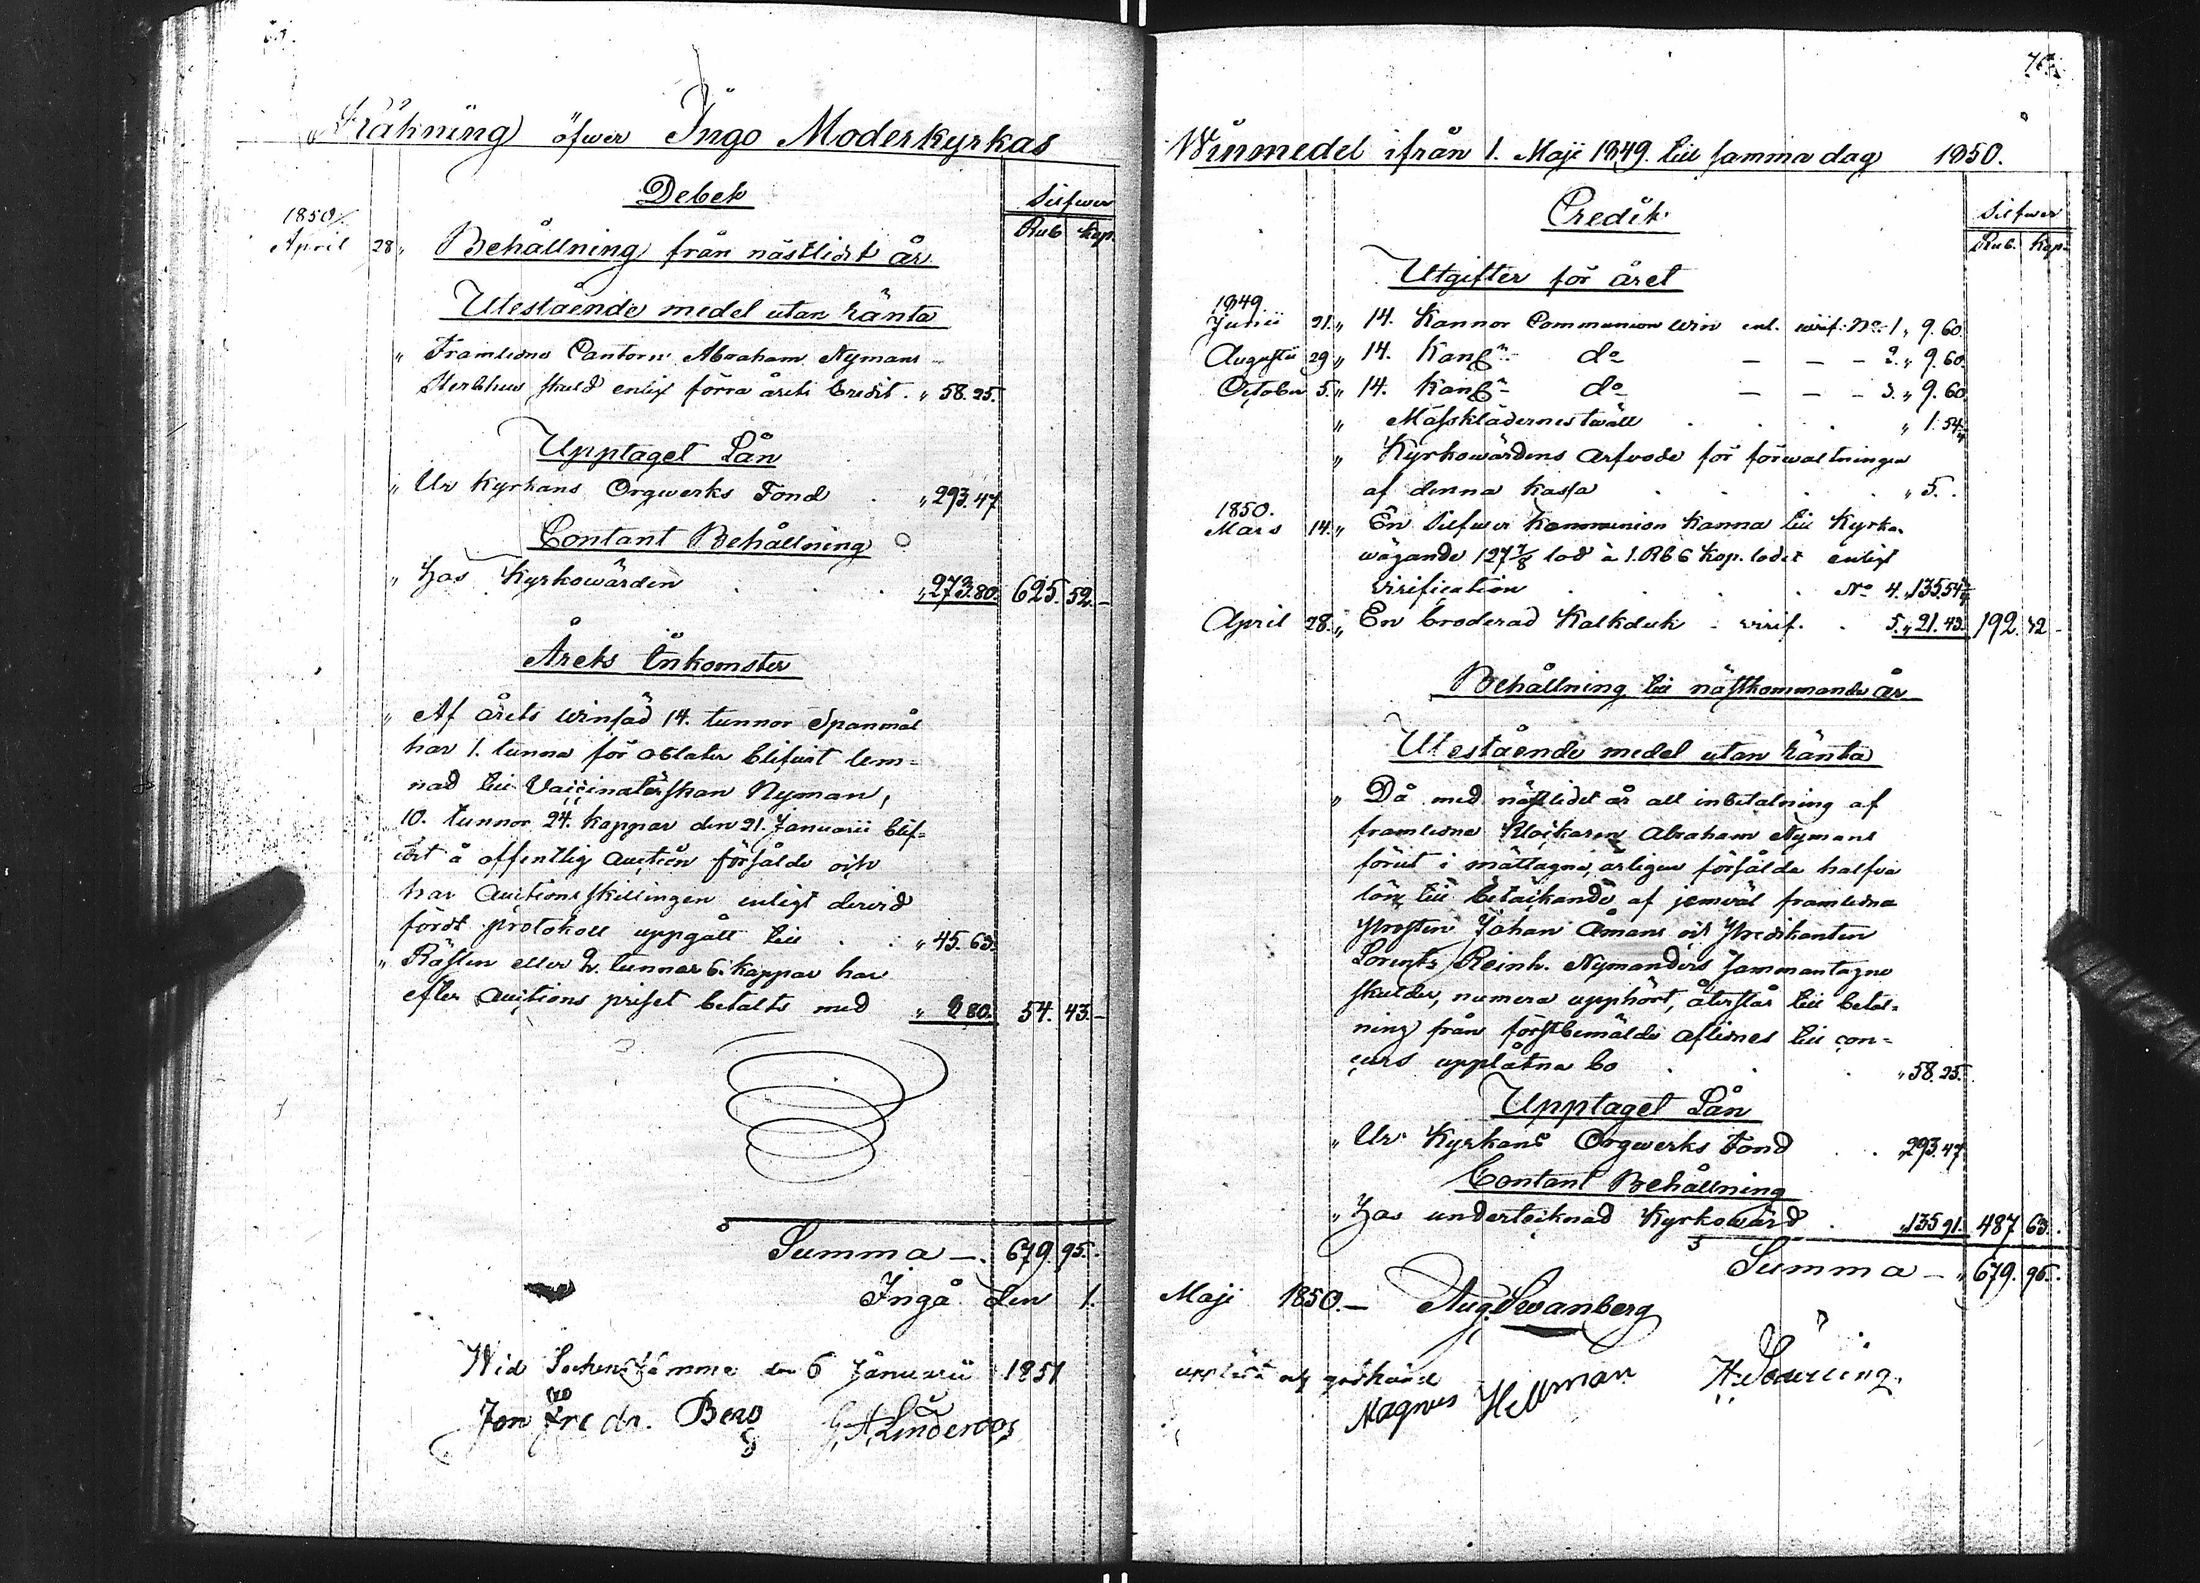 Räkning öfwer Ingo Moderkyrkas
Debet
Silfwer
Rub. Kop.
1850.
April 28 " Behållning från nästlidit år
Utestående medel utan ränta
" Framlidne Cantorn Abraham Nymans
Sterbhus skuld enligt förra årets Credit . " 58.25.
Upptaget Lån
" Ur Kyrkans Orgwerks Fond . " 293.47
Contant Behållning
" Hos Kyrkowärden . . . " 273.80. 625. 52.-
Årets Inkomster
" Af årets winsäd 14. tunnor Spanmål
har 1. tunna för oblater blifwit lem-
nad till Vaccinatörskan Nyman,
10. tunnor 24. kappar den 21. Januarii blif-
wit å offentlig Auction försålde och
har Auctions skillingen enligt dervid
fördt protokoll uppgått till . . " 45.63.
" Resten eller 2. tunnor 6. kappar har
efter Auctions priset betalts med " 8 80. 54. 43.-
Summa -. 679. 95.-
Ingå den 1.
Wid Sockenstämma den 6 Januarii 1851
Jon Fredr. Berg G. A. Linderoos
70.
Winmedel ifrån 1. Maji 1849. till samma dag 1850.
Credit
Silfwer
Rub. Kop.
Utgifter för året
1849
Junii 21. " 14. Kannor Communion win enl. wirif. No. 1 " 9.60.
Augusti 29 " 14. Kanor do - - - 2. " 9.60.
October 5. " 14. Kanor do - - - 3. " 9.60
" Mässklädernes twätt . . . " 1.54 3/4
" Kyrkowärdens arfvode för förwaltningen
af denna kassa . . . . " 5. .
1850.
Mars 14. " En Silfwer Kommunion Kanna till Kyrkan
wägande 127 7/8 lod à 1. Rb 6 Kop. lodet enligt
virification . . . . No 4. " 135.54 3/4
April 28. " En broderad Kalkduk - virif. . 5. " 21.43. 192. 32 -
Behållning till nästkommande år
Utestående medel utan ränta
" Då med nästlidet år all inbetalning af
framlidne Klockaren Abraham Nymans
förut i mättagne, årligen försålda halfva
lön till betäckande af jemväl framlidne
Prosten Johan Åmans och Predikanten
Lorentz Reinh. Nymanders sammantagne
skulder, numera upphört, återstår till betal-
ning från förstbemälde aflidnes till con-
curs upplåtna bo . . . " 58.25.
Upptaget Lån
" Ur Kyrkans Orgwerks Fond . . " 293.47
Contant Behållning
" Hos undertecknad Kyrkowärd . " 135 91. 487 63. .
Summa - " 679. 95. .
Maji 1850. - Aug. Swanberg
uppläst och godkänd
Magnus Hellman